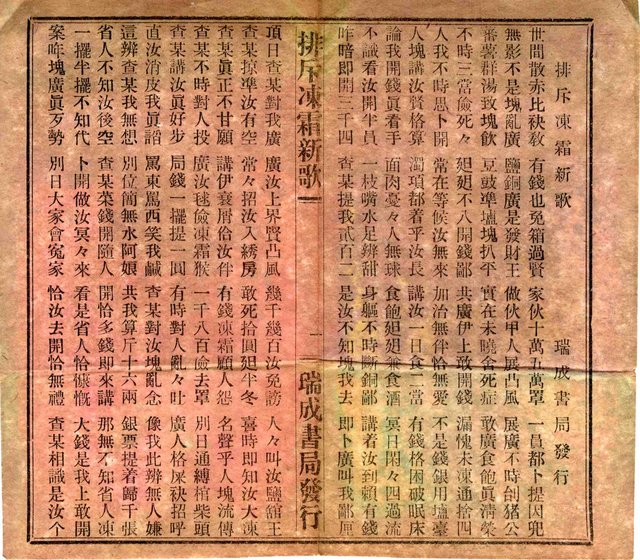 排斥凍霜新歌 瑞成書局發行
世間散赤比秧教 有錢也免箱過賢 家伙十萬五萬罩 一員都卜提因兜
無影不是塊亂廣 鹽銅廣是發財王 做伙甲人展凸風 展廣不時創猪公
蕃薯群湯攻塊飲 豆豉凖壚塊扒平 實在未曉舍死症 敢廣食飽眞清榮
不時三當儉死々 廷廷不八開錢鄙 共廣伊上敢開錢 漏愧未凍通捨四
人我不時思卜開 常在等候汝無來 加治無伴恰無愛 不是錢銀用壚臺
人塊講汝賢格算 濁項都着乎汝長 講汝一日食二當 有錢格困破眠床
論我開錢眞看手 面肉臺々人無球 食飽廷廷兼食酒 冥日閑々四過流
不識看汝開半員 一枝嘴水足辨甜 身軀不時斷銅鄙 講着汝到賴有錢
昨暗即開三千四 查某提我貳百二 是汝不知塊我去 即卜廣叫我鄙厘
排斥凍霜新歌 一 瑞成書局發行
項日查某對我廣 廣汝上界賢凸風 幾千幾百汝免謗 人々叫汝鹽舘王
查某掠準汝有空 常々招汝入綉房 敢死拾圓廷半冬 喜時即知汝大凍
查某眞正不甘願 講伊衰屑佮汝伴 有錢凍霜顧人怨 名聲乎人塊流傳
查某不時對人投 廣汝毬儉凍霜猴 一千八百儉去罩 別日通縛棺柴頭
查某講汝眞好步 局錢一擺提一圓 有時對人亂々吐 廣人格屎秧招呼
直汝消皮我眞諂 罵東罵西笑我鹹 查某對汝塊亂念 像我此辨無人嫌
這辨查某我無想 別位簡無水阿娘 共我算斤十六兩 銀票提着歸千張
省人不知汝後空 查某菜錢開隨人 開恰多錢即來講 那無不知省人凍
一擺半擺不知代 卜開做汝冥々來 看是省人恰慷慨 大錢是我上敢開
案咋塊廣眞歹勢 別日大家會冤家 恰汝去開恰無禮 查某相識是汝个